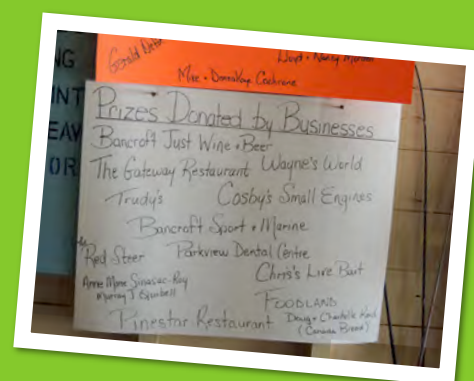 NG
INT
EAV
OR
Gerald
Lloyd + Nancy
Mike + Donna Kay Cochrane
Prizes Donated by Businesses
Bancroft Just Wine + Beer
The Gateway Restaurant Wayne's World
Trudy's Cosby's Small Engines
Bancroft Sport + Marine
Red Steer Parkview Dental Centre
Chris's Live Bait
Anne Marie
Murray
FOODLAND
Pinestar Restaurant Doug + Chantelle
(Canada Bread)